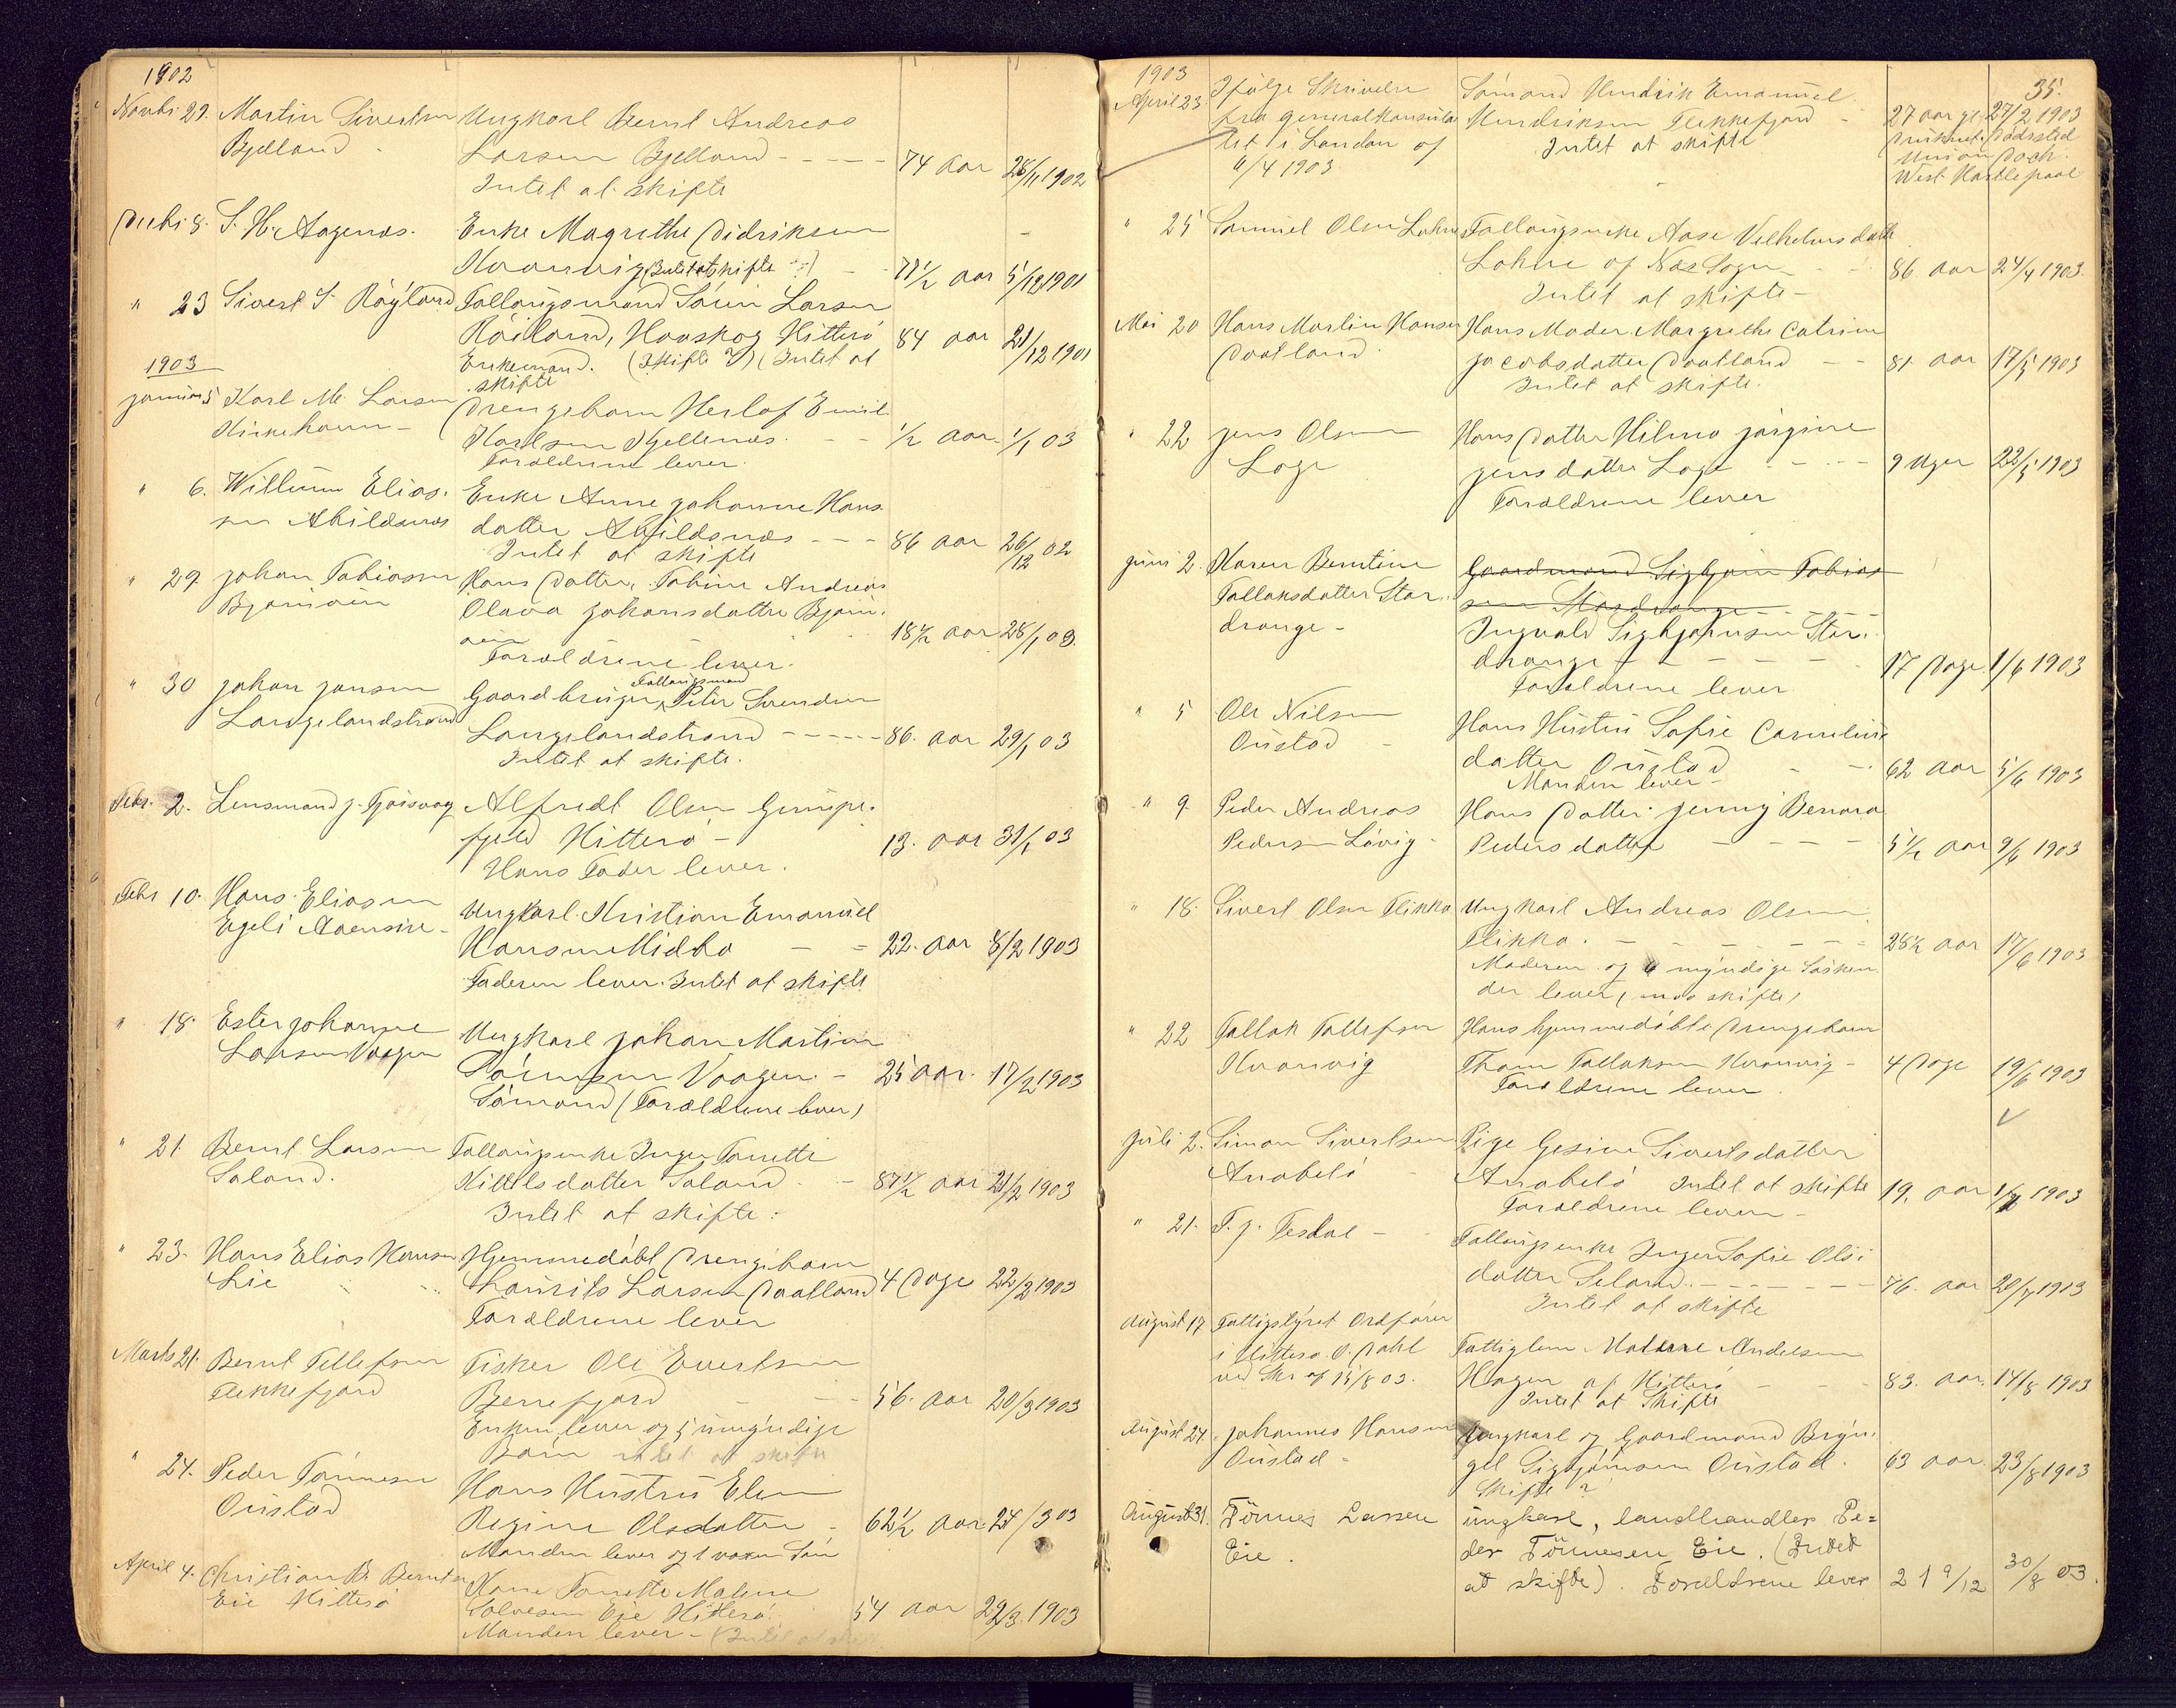 1902
Novbr 29. Martin Sivertsen Ungkarl Bernt Andreas
Bjelland Larsen Bjelland - - - - - 74 aar 28/11 1902
Intet at skifte
Decbr 8. S. H. Aagenæs. Enke Magrethe Didriksen
Kvanvig (Intet at skifte) - 77 1/2 aar 5/12 1901
" 23 Sivert S. Røyland Fallougsmand Søren Larsen
Røiland, Haaskog Hitterø 84 aar 21/12 1901
Enkemand. (Skifte ?) (Intet at
skifte
1903
Januar 5 Karl M. Larsen Drengebarn Herlof Emil
Kirkehavn - Karlsen Kjellenæs. - - 1/2 aar 1/1 03
Forældrene lever.
" 6. Willum Elias- Enke Anne Johanne Hans
sen Abildsnæs datter Abildsnæs - - - 86 aar 26/12 02
Intet at skifte
" 29. Johan Tobiassen Hans Datter Tobine Andrea
Bjørnøen Olava Johansdatter Bjørn-
øen 18 1/2 aar 28/1 03.
Forældrene lever.
Fallougsmand
" 30 Johan Jansen Gaardbruger, Peter Svendsen
Langelandstrand Langelandstrand - - - - - 86. aar 29/1 03
Intet at skifte.
Febr. 2. Lensmand J. Tjørsvaag Alfredt Olsen Gumpe-
fjeld Hitterø - 13. aar 31/1 03
Hans Fader lever.
Febr 10. Hans Eliasen Ungkarl Kristian Emanuel
Egeli Hansen Midbø - = 22. aar 8/2 1903
Faderen lever. Intet at skifte
" 18. Ester Johanne Ungkarl Johan Martin
Larsen Vaagen Sørensen Vaagen. - 25 aar. 17/2 1903
Sømand (Forældrene lever)
" 21. Bernt Larsen Fallougsenke Inger Tonette
Saland. Kittelsdatter Saland. - 87 1/2 aar 21/2 1903
Intet at skifte.
" 23. Hans Elias Hansen Hjemmedøbt Drengebarn
Lie Laurits Larsen Daatland 4 Dage 22/2 1903
Forældrene lever
Marts 21. Bernt Tellefsen Fisker Ole Evertsen
Flekkefjord Berrefjord - - - 56. aar 20/3 1903
Enken lever og 5 umyndige
Børn intet at skifte
" 24. Peder Tønnesen Hans Hustru Elen
Oustad Regine Olsdatter - 62 1/2 aar 24/3 03
Manden lever og 1 voxen Søn
April 4. Christian B. Berntsen Kone Tonette Malene
Eie Hitterø Salvesen Eie Hitterø. 54 aar 29/3. 1903
Manden lever - (Intet at skifte
1903 35.
April 23. Ifølge Skrivelse Sømand Hendrik Emanuel
fra Generalkonsula Hendriksen Flekkefjord - 27 aar gl. 27/2 1903
tet i London af Intet at skifte Druknet Dødssted
6/4 1903 Union Dock.
West Hartlepool
" 25 Samuel Olsen Lohne Fallougsenke Aase Velhelmsdatter
Lohne af Næs Sogn - - 86. aar 24/4 1903.
Intet at skifte -
Mai 20 Hans Martin Hansen Hans Moder Margrethe Catrine
Daatland. Jacobsdatter Daatland - - 81 aar 17/5 1903
Intet at skifte.
" 22 Jens Olsen Hans Datter Hilma Jørgine
Loge Jensdatter Loge - - - 9 Uger 22/5 1903
Forældrene lever
Juni 2. Karen Berntine Gaardmand Sigbjørn Tobias
Fallaksdatter Stor- sen Stordrange - - - -
drange - Ingvald Sigbjørnsen Stor-
drange - - - - - 17 Dage 1/6 1903
Forældrene lever
" 5 Ole Nilsen Hans Hustru Sofie Cornelius
Oustad - datter Oustad - - 62 aar 5/6 1903
Manden lever -
" 9. Peder Andreas Hans Datter Jenny Benora
Pedersen Løvig - Pedersdatter - - - - 5 1/2 aar 9/6 1903
" 18. Sivert Olsen Flikka Ungkarl Andreas Olsen
Flikka. - - - - - - 28 1/2 aar 17/6 1903
Moderen og 6 myndige Søsken
der lever, maa skifte)
" 22 Tallak Tollefsen Hans hjemmedøbte Drengebarn
Kvanvig Thom Tallaksen Kvanvig - 4 Dage 19/6 1903
Forældrene lever
Juli 2. Simon Sivertsen Pige Gesine Sivertsdatter
Anabelø Anabelø Intet at skifte 19. aar 1/7 1903
Forældrene lever -
" 21. T. J. Fesdal - Fallougsenke Inger Sofie Ols-
datter Seland. - - - - - 76. aar 20/7 1903
Intet at skifte
August 17 Fattigstyret Ordfører Fattiglem Malene Andersen
i Hitterø O. Dahl Hagen af Hitterø - - - 83. aar. 14/8 1903
ved Skr af 15/8 03. Intet at Skifte
August 24. Johannes Hansen Ungkarl og Gaardmand Bryn-
Oustad - gel Sigbjørnsen Oustad. 63 aar. 23/8 1903
Skifte ?
August 31. Tönnes Larsen ungkarl, landhandler Pe=
Eie. der Tönnesen Eie. (Intet
at skifte). Forældrene lever 21 9/12 30/8 03.